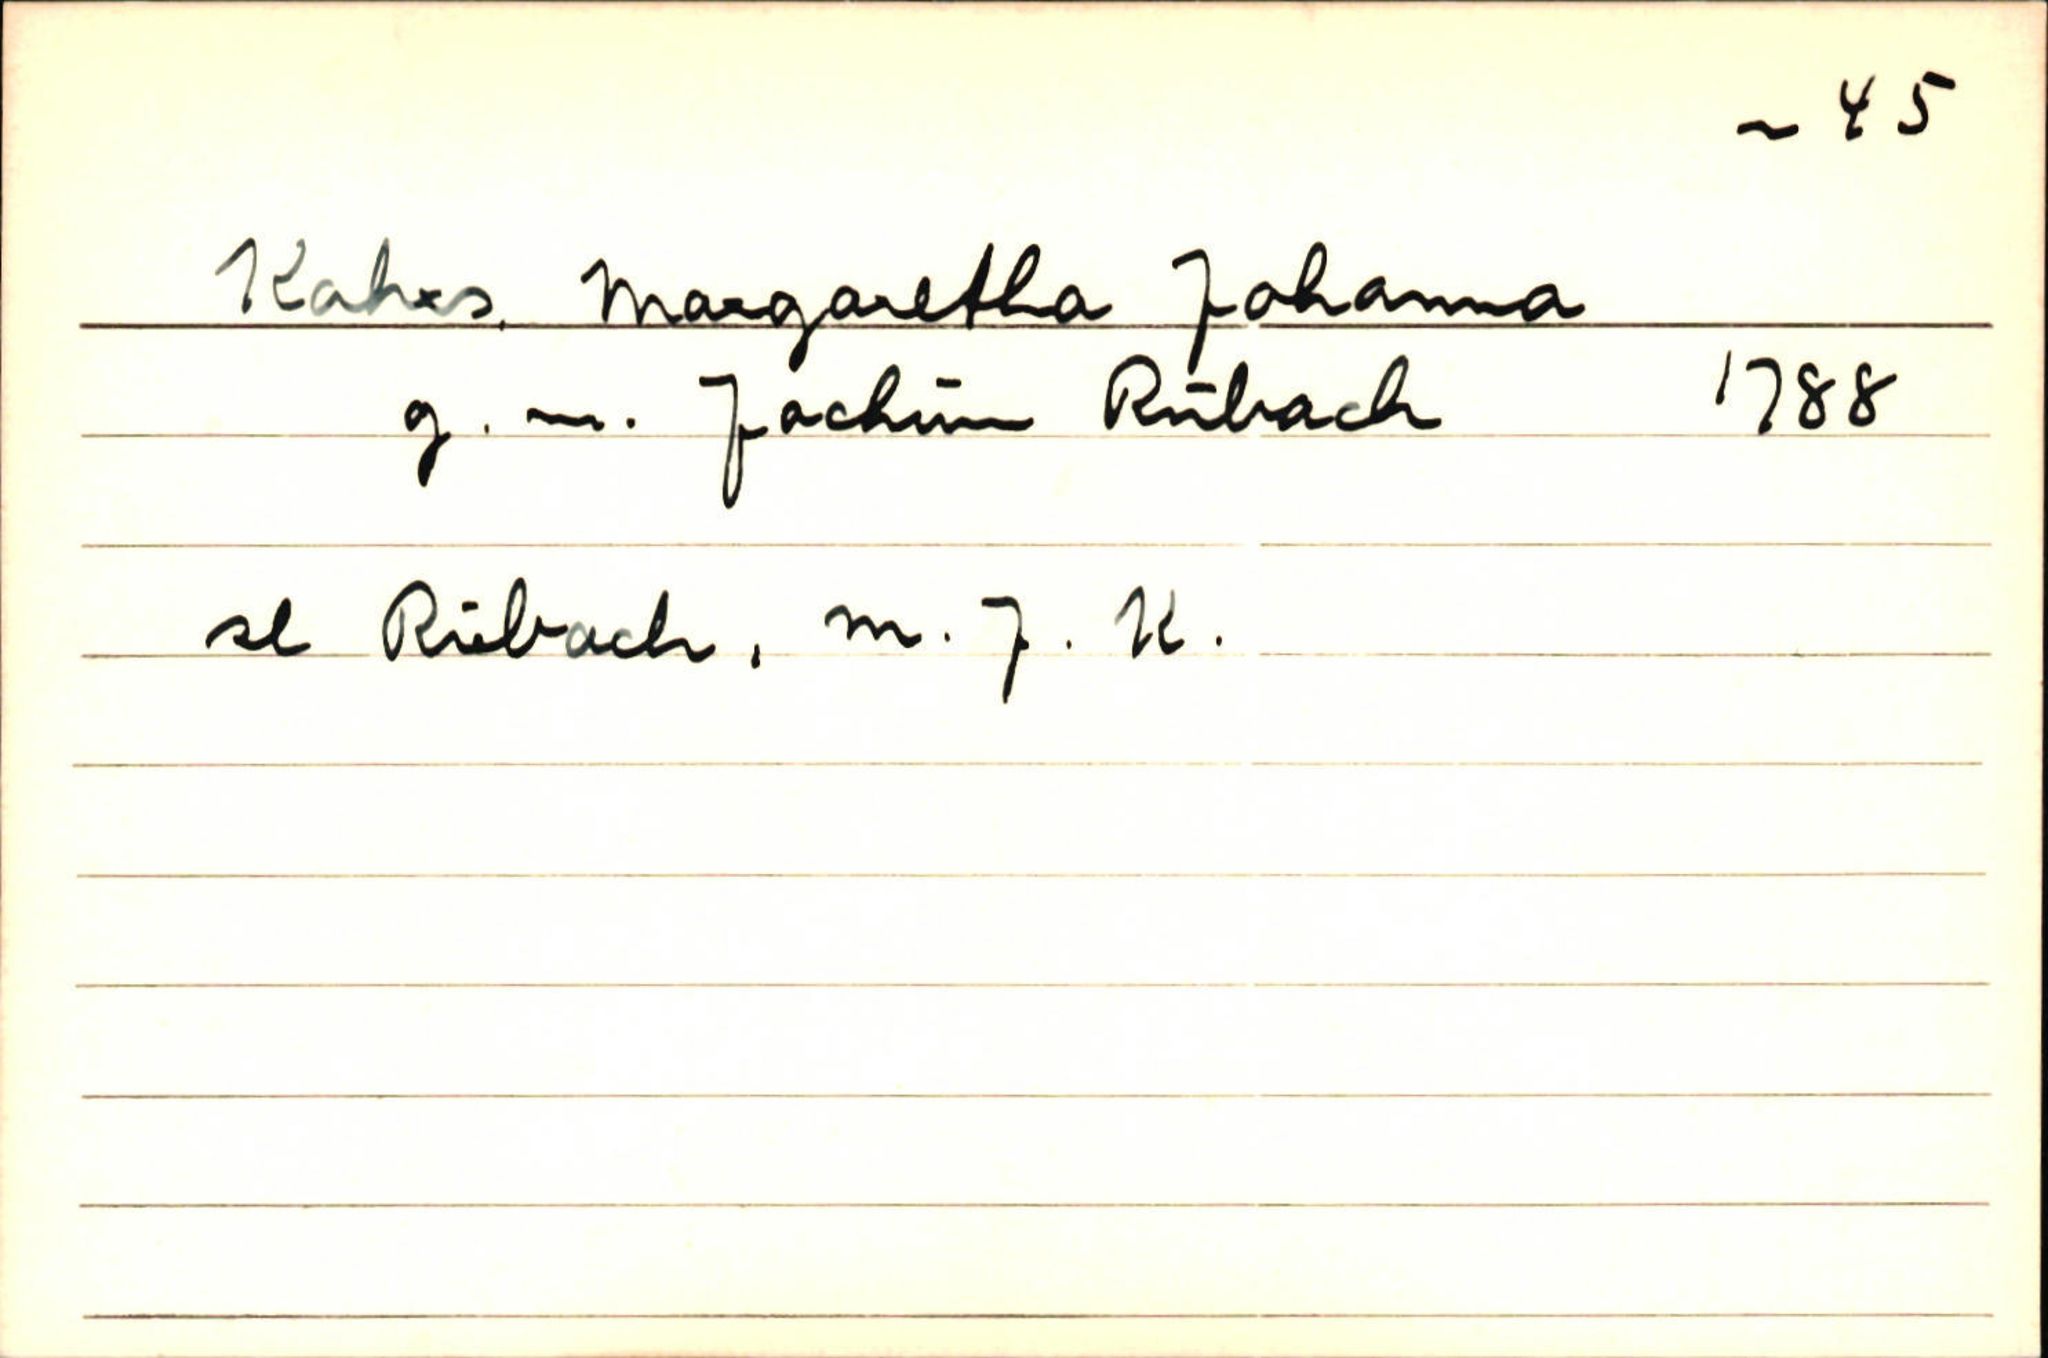 ~ 45
Kahrs, Margaretha Johanna
g. m. Jochim Rübach 1788
se Rübach, M. J. K.